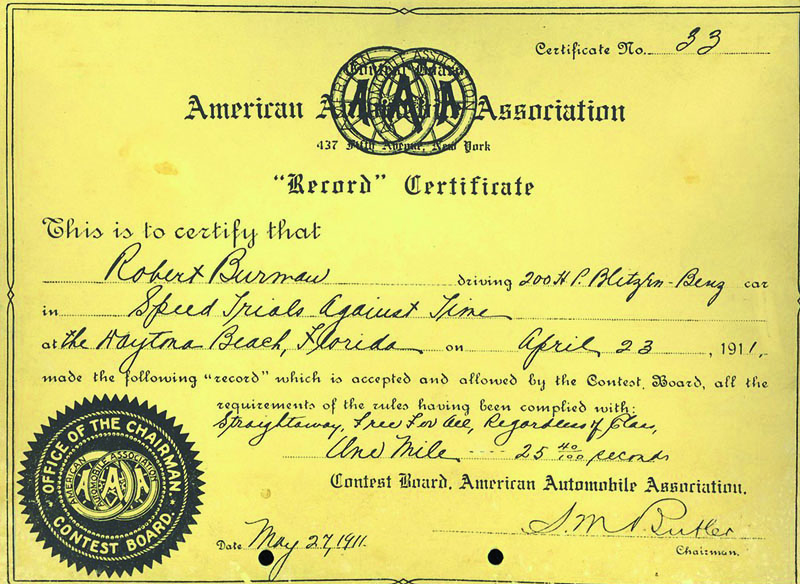 Certificate No. 33
Contest Board
AMERICAN AUTOMOBILE ASSOCIATION
AAA
American Automobile Association
437 Fifth Avenue, New York
"Record" Certificate
This is to certify that
Robert Burman driving 200 H.P. Blitzen-Benz car
in Speed Trials Against Time
at the Daytona Beach, Florida on April 23, 1911,
made the following "record" which is accepted and allowed by the Contest Board, all the
requirements of the rules having been complied with:
Straightaway, Free For All, Regardless of Class,
One Mile ---- 25 40/100 seconds
Contest Board, American Automobile Association.
S.M. Butler
Chairman.
Date May 27, 1911.
OFFICE OF THE CHAIRMAN.
AMERICAN AUTOMOBILE ASSOCIATION
AAA
CONTEST BOARD.